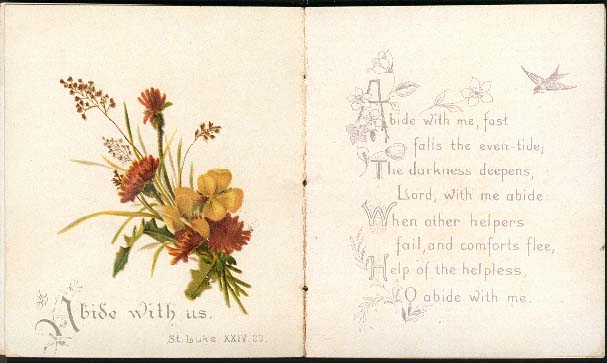 Abide with us.
St. Luke XXIV. 29.
Abide with me, fast
falls the even-tide;
The darkness deepens,
Lord, with me abide:
When other helpers
fail, and comforts flee,
Help of the helpless,
O abide with me.